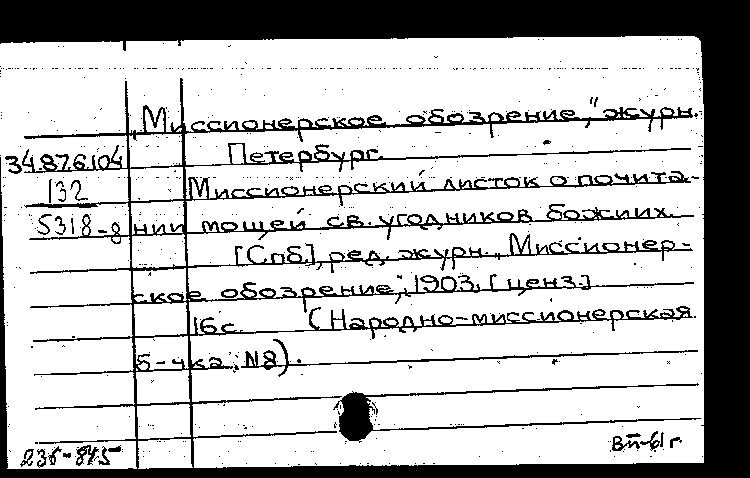 „Миссионерское обозрение," журн.
Петербург.
34.87.6.104
132
Миссионерский листок о почита-
5318-8 нии мощей св. угодников божиих.
[Спб], ред. журн. „Миссионер-
ское обозрение", 1903, [ценз.]
16 с. (Народно-миссионерская
б-чка; №8).
236-845
ВП-61 г